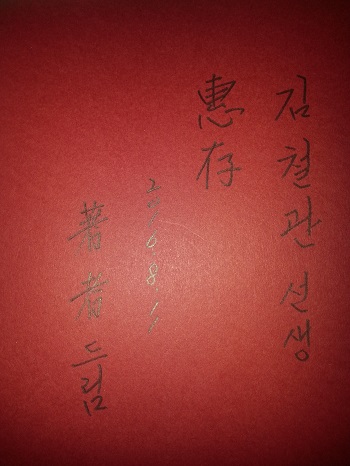 김철관 선생
惠存
著者 드림